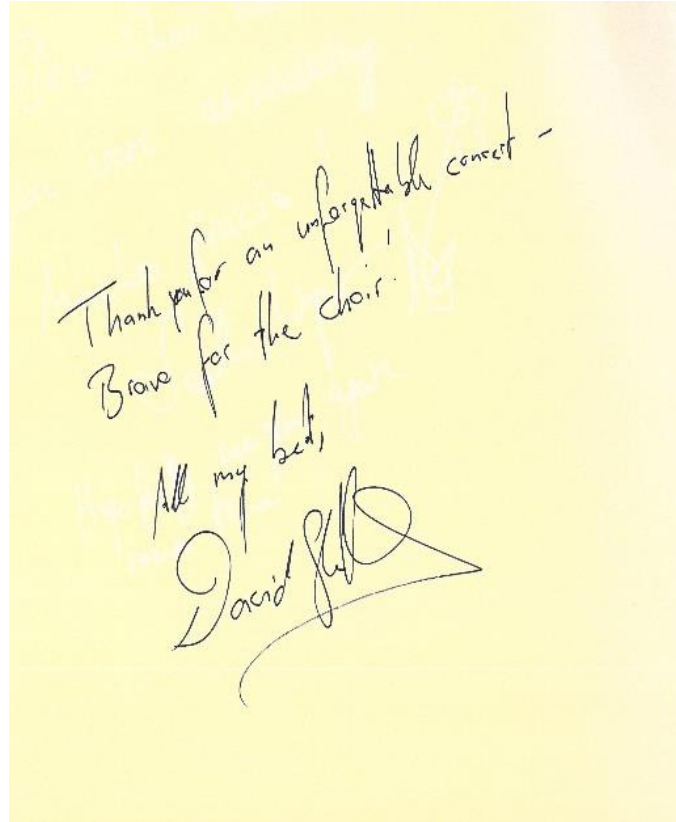 Thank you for an unforgettable concert –
Bravo for the choir!
All my best,
David